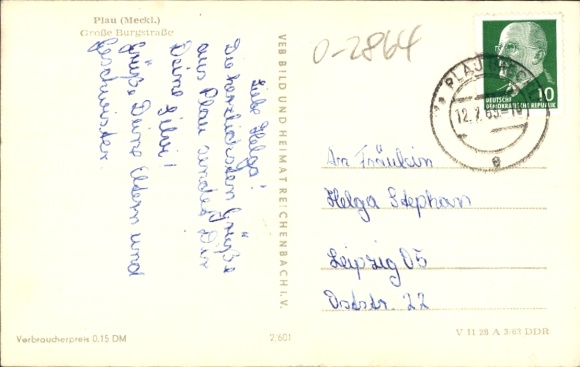 Plau (Meckl.)
Große Burgstraße
Liebe Helga!
Die herzlichsten Grüße
aus Plau sendet Dir
Deine Silvi!
Grüße Deine Eltern und
Geschwister.
Verbraucherpreis 0,15 DM
VEB BILD UND HEIMAT REICHENBACH i. V.
2/601
0-2864
DEUTSCHE
DEMOKRATISCHE REPUBLIK
10
PLAU (MECKL)
12.7.65-10
a
An Fräulein
Helga Stephan
Leipzig O5
Oststr. 22
V 11 28 A 3/63 DDR